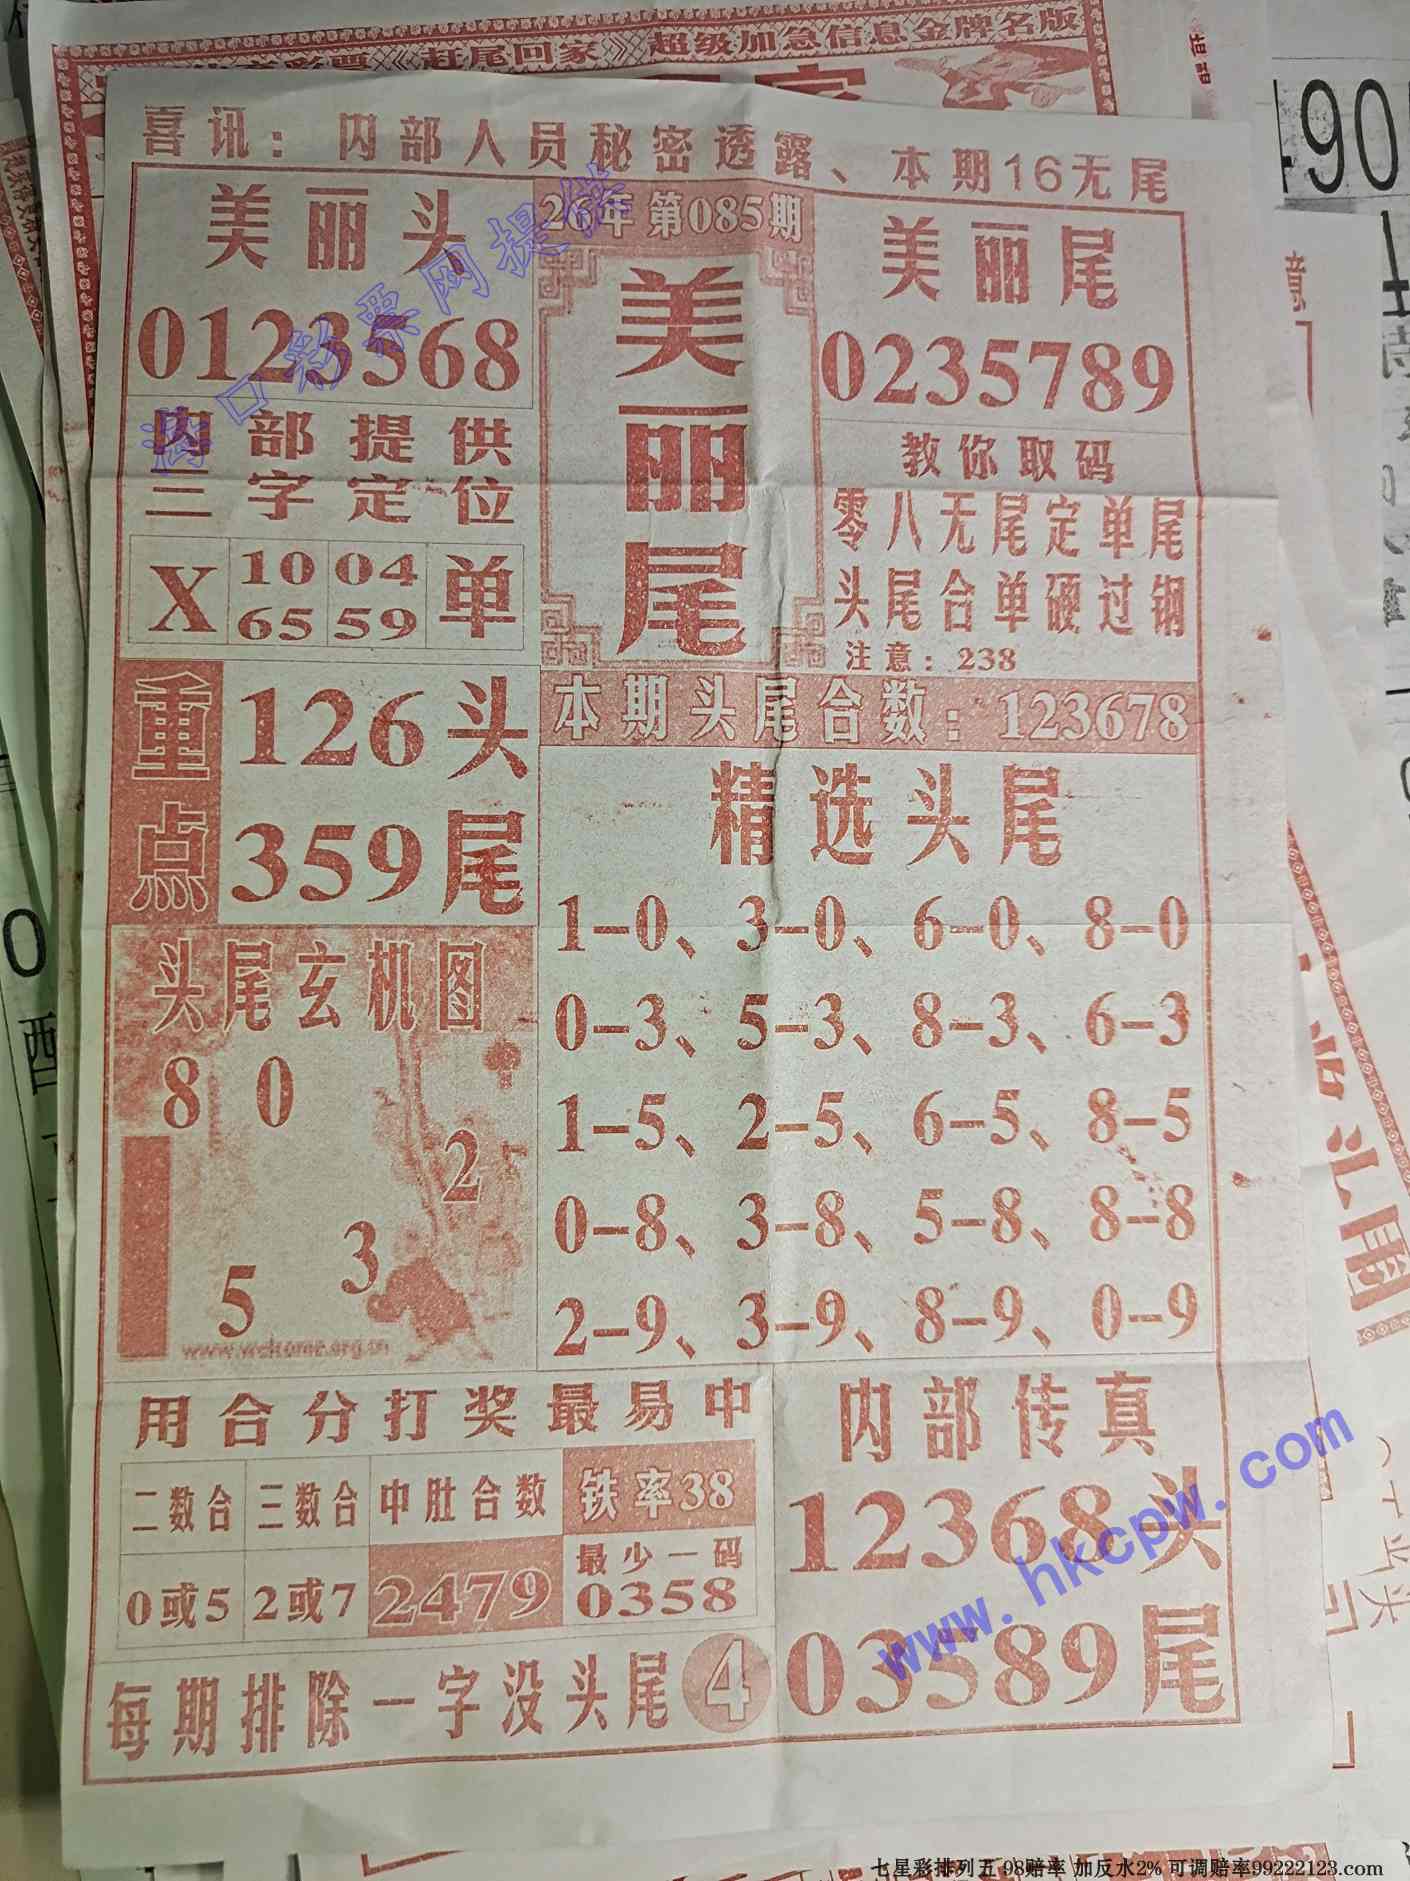 《赶尾回家》超级加急信息金牌名版
喜讯：内部人员秘密透露、本期16无尾
美丽头
0123568
26年 第085期
美丽尾
美丽尾
0235789
海口彩票网提供
内部提供
三字定位
X
10 04
65 59
单
教你取码
零八无尾定单尾
头尾合单硬过钢
注意：238
重点
126头
359尾
本期头尾合数：123678
精选头尾
1-0、3-0、6-0、8-0
0-3、5-3、8-3、6-3
1-5、2-5、6-5、8-5
0-8、3-8、5-8、8-8
2-9、3-9、8-9、0-9
头尾玄机图
8 0
2
3
5
www.welcome.org.cn
用合分打奖最易中
二数合 三数合 中肚合数 铁率38
0或5 2或7 2479 最少一码
0358
内部传真
12368头
03589尾
每期排除一字没头尾 4
www.hkcpw.com
490
七星彩排列五 98赔率 加反水2% 可调赔率99222123.com